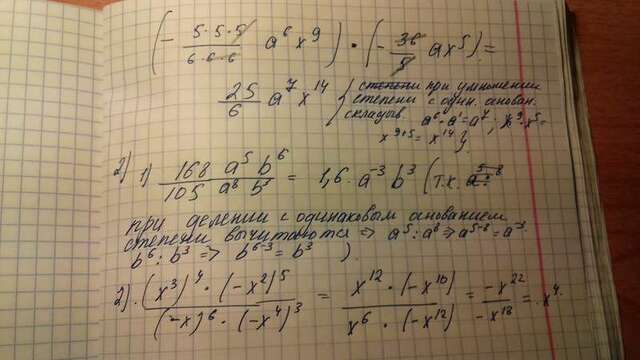 (- 5·5·5 / 6·6·6 a⁶ x⁹) · (- 36 / 5 ax⁵) =
25 / 6 a⁷ x¹⁴ (степени при умножении
степени с один. основан.
склад. a⁶·a=a⁷; x⁹·x⁵=
x⁹⁺⁵=x¹⁴).
2) 1) 168 a⁵ b⁶ / 105 a⁸ b³ = 1,6 · a⁻³ b³ (т.к.
при делении с одинаковым основанием
степени вычитаются ⇒ a⁵:a⁸ ⇒ a⁵⁻⁸ = a⁻³
b⁶:b³ ⇒ b⁶⁻³ = b³)
2). (x³)⁴ · (-x²)⁵ / (-x)⁶ · (-x⁴)³ = x¹² · (-x¹⁰) / x⁶ · (-x¹²) = -x²² / -x¹⁸ = x⁴.